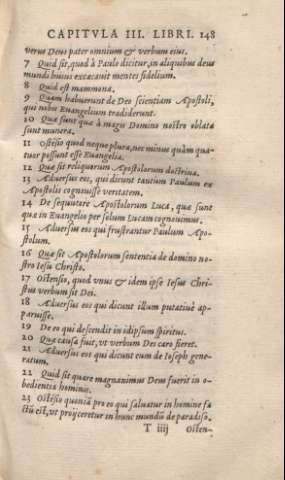 CAPITVLA III. LIBRI. 148
verus Deus pater omnium & verbum eius.
7 Quid sit, quod à Paulo dicitur, in aliquibus deus
mundi huius excæcauit mentes fidelium.
8 Quid est mammona.
9 Quam habuerunt de Deo scientiam Apostoli,
qui nobis Euangelium tradiderunt.
10 Quæ sunt quæ à magis Domino nostro oblata
sunt munera.
11 Ostēsio quod neque plura, nec minus quàm qua-
tuor possunt esse Euangelia.
12 Quæ sit reliquorum Apostolorum doctrina.
13 Aduersus eos, qui dicunt tantùm Paulum ex
Apostolis cognouisse veritatem.
14 De sequutore Apostolorum Luca, quæ sunt
quæ in Euangelio per solum Lucam cognouimus.
15 Aduersus eos qui frustrantur Paulum Apo-
stolum.
16 Quæ sit Apostolorum sententia de domino no-
stro Iesu Christo.
17 Ostensio, quod vnus & idem ipse Iesus Chri-
stus verbum sit Dei.
18 Aduersus eos qui dicunt illum putatiuè ap-
paruisse.
19 De eo qui descendit in idipsum spiritus.
20 Quæ causa fuit, vt verbum Dei caro fieret.
21 Aduersus eos qui dicunt eum de Ioseph gene-
ratum.
22 Quid sit quare magnanimus Deus fuerit in o-
bedientia hominis.
23 Ostēsio quoniā pro eo qui saluatur in homine fa-
ctū est, vt proijceretur in hunc mundū de paradiso.
T iiij Osten-